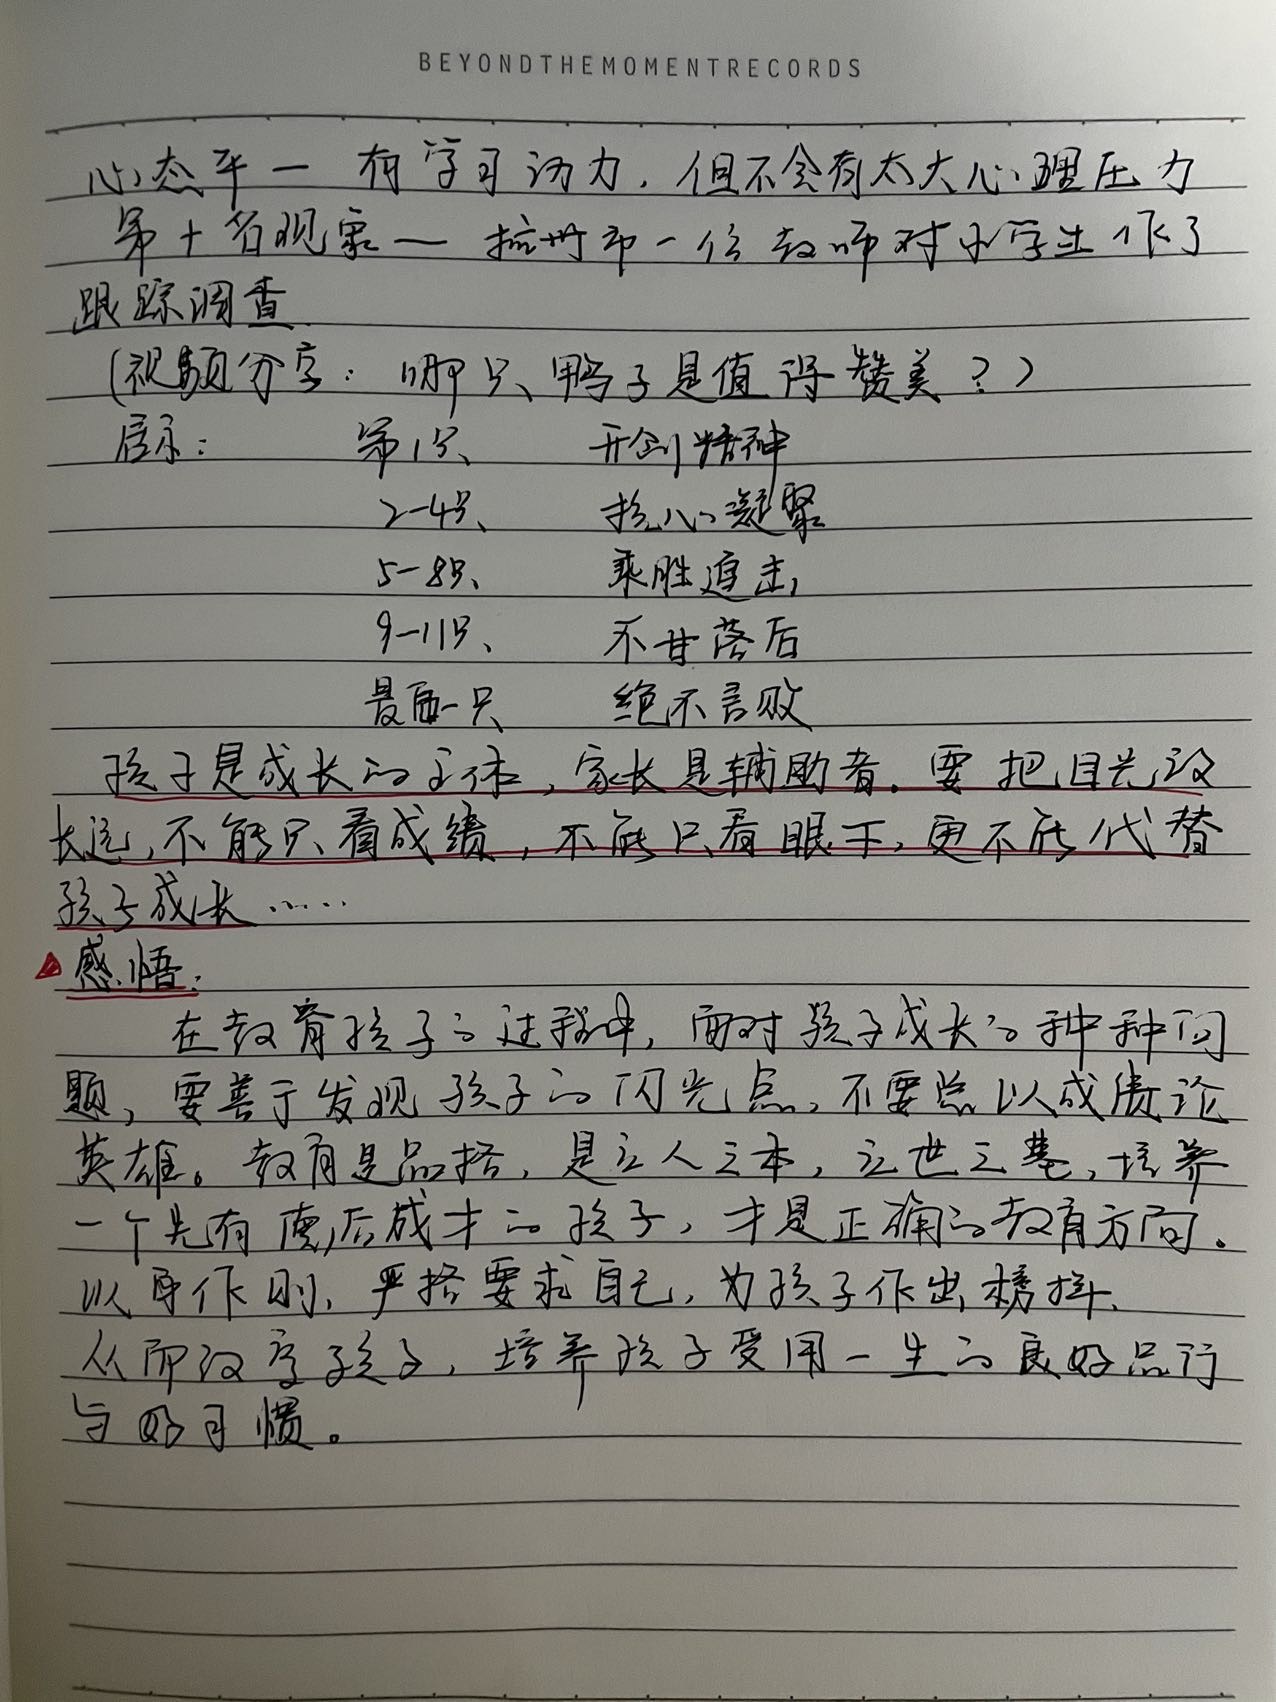 BEYONDTHEMOMENTRECORDS
心态平一 有学习动力，但不会有太大心理压力
第十名现象一 杭州市一位教师对小学生作了
跟踪调查
（视频分享：哪只鸭子是值得赞美？）
启示： 第1只 开创精神
2-4只 核心凝聚
5-8只 乘胜追击
9-11只 不甘落后
最后一只 绝不言败
孩子是成长的主体，家长是辅助者。要把目光放
长远，不能只看成绩，不能只看眼下，更不能代替
孩子成长……
感悟：
在教育孩子的过程中，面对孩子成长的种种问
题，要善于发现孩子的闪光点，不要总以成绩论
英雄。教育是品格，是立人之本，立世之基，培养
一个先有德后成才的孩子，才是正确的教育方向。
以身作则，严格要求自己，为孩子作出榜样，
从而教育孩子，培养孩子受用一生的良好品行
与好习惯。